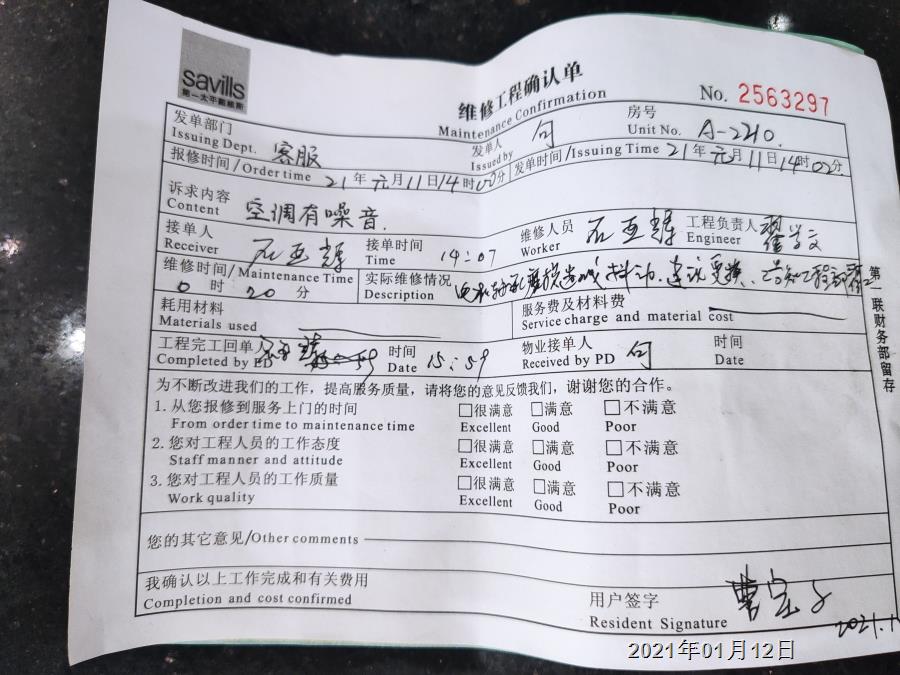 savills
第一太平戴维斯
维修工程确认单
Maintenance Confirmation
No. 2563297
发单部门 客服
Issuing Dept.
发单人 句
Issued by
房号 A-2210.
Unit No.
报修时间/Order time 21年元月11日14时00分
发单时间/Issuing Time 21年元月11日14时02分
诉求内容 空调有噪音.
Content
接单人 石亚辉
Receiver
接单时间 14:07
Time
维修人员 石亚辉
Worker
工程负责人
Engineer
维修时间/Maintenance Time
0时20分
实际维修情况
Description
电机轴承磨损造成抖动.建议更换.已告知工程部
耗用材料
Materials used
服务费及材料费
Service charge and material cost
工程完工回单
Completed by ED
时间 15:59
Date
物业接单人 句
Received by PD
时间
Date
为不断改进我们的工作，提高服务质量，请将您的意见反馈我们，谢谢您的合作。
1.从您报修到服务上门的时间 □很满意 □满意 □不满意
From order time to maintenance time Excellent Good Poor
2.您对工程人员的工作态度 □很满意 □满意 □不满意
Staff manner and attitude Excellent Good Poor
3.您对工程人员的工作质量 □很满意 □满意 □不满意
Work quality Excellent Good Poor
您的其它意见/Other comments
我确认以上工作完成和有关费用
Completion and cost confirmed
用户签字
Resident Signature
2021.1
第二联财务部留存
2021年01月12日